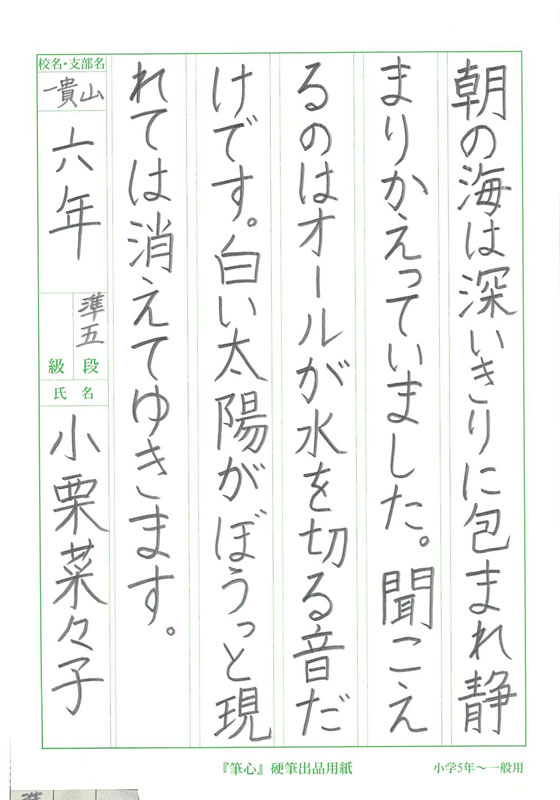 朝の海は深いきりに包まれ静
まりかえっていました。聞こえ
るのはオールが水を切る音だ
けです。白い太陽がぼうっと現
れては消えてゆきます。
校名・支部名
一貴山
六年
準五
級 段
氏 名
小栗菜々子
『筆心』硬筆出品用紙
小学5年〜一般用